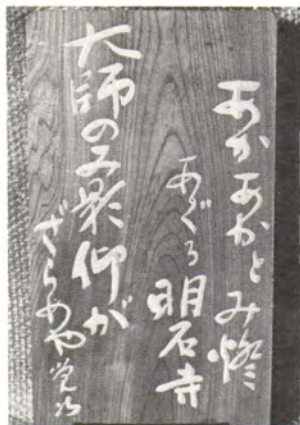 あかあかとみ燈
あぐる明石寺
大師のみ影仰が
ざらめや